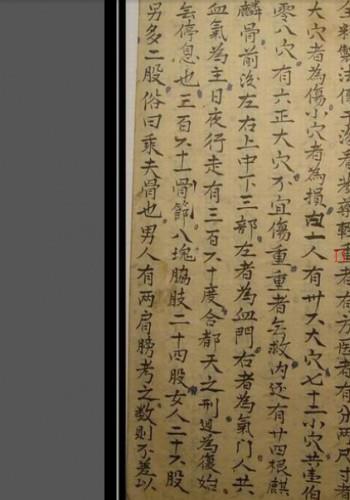 重者有方医者有分两尺寸
大穴者為傷小穴者為損一人有卅六大穴七十二小穴共壹佰
零八穴有六正大穴不宜傷重重者无救内还有廿四根麒
麟骨前後左右上中下三部左者為血門右者為氣門人共
血氣為主日夜行走有三百六十度合都天之刑週為復始
无停息也三百六十一骨節八塊脇肢二十四股女人二十六股
另多二股俗曰乘夫骨也男人有两肩膀考之数則不差以